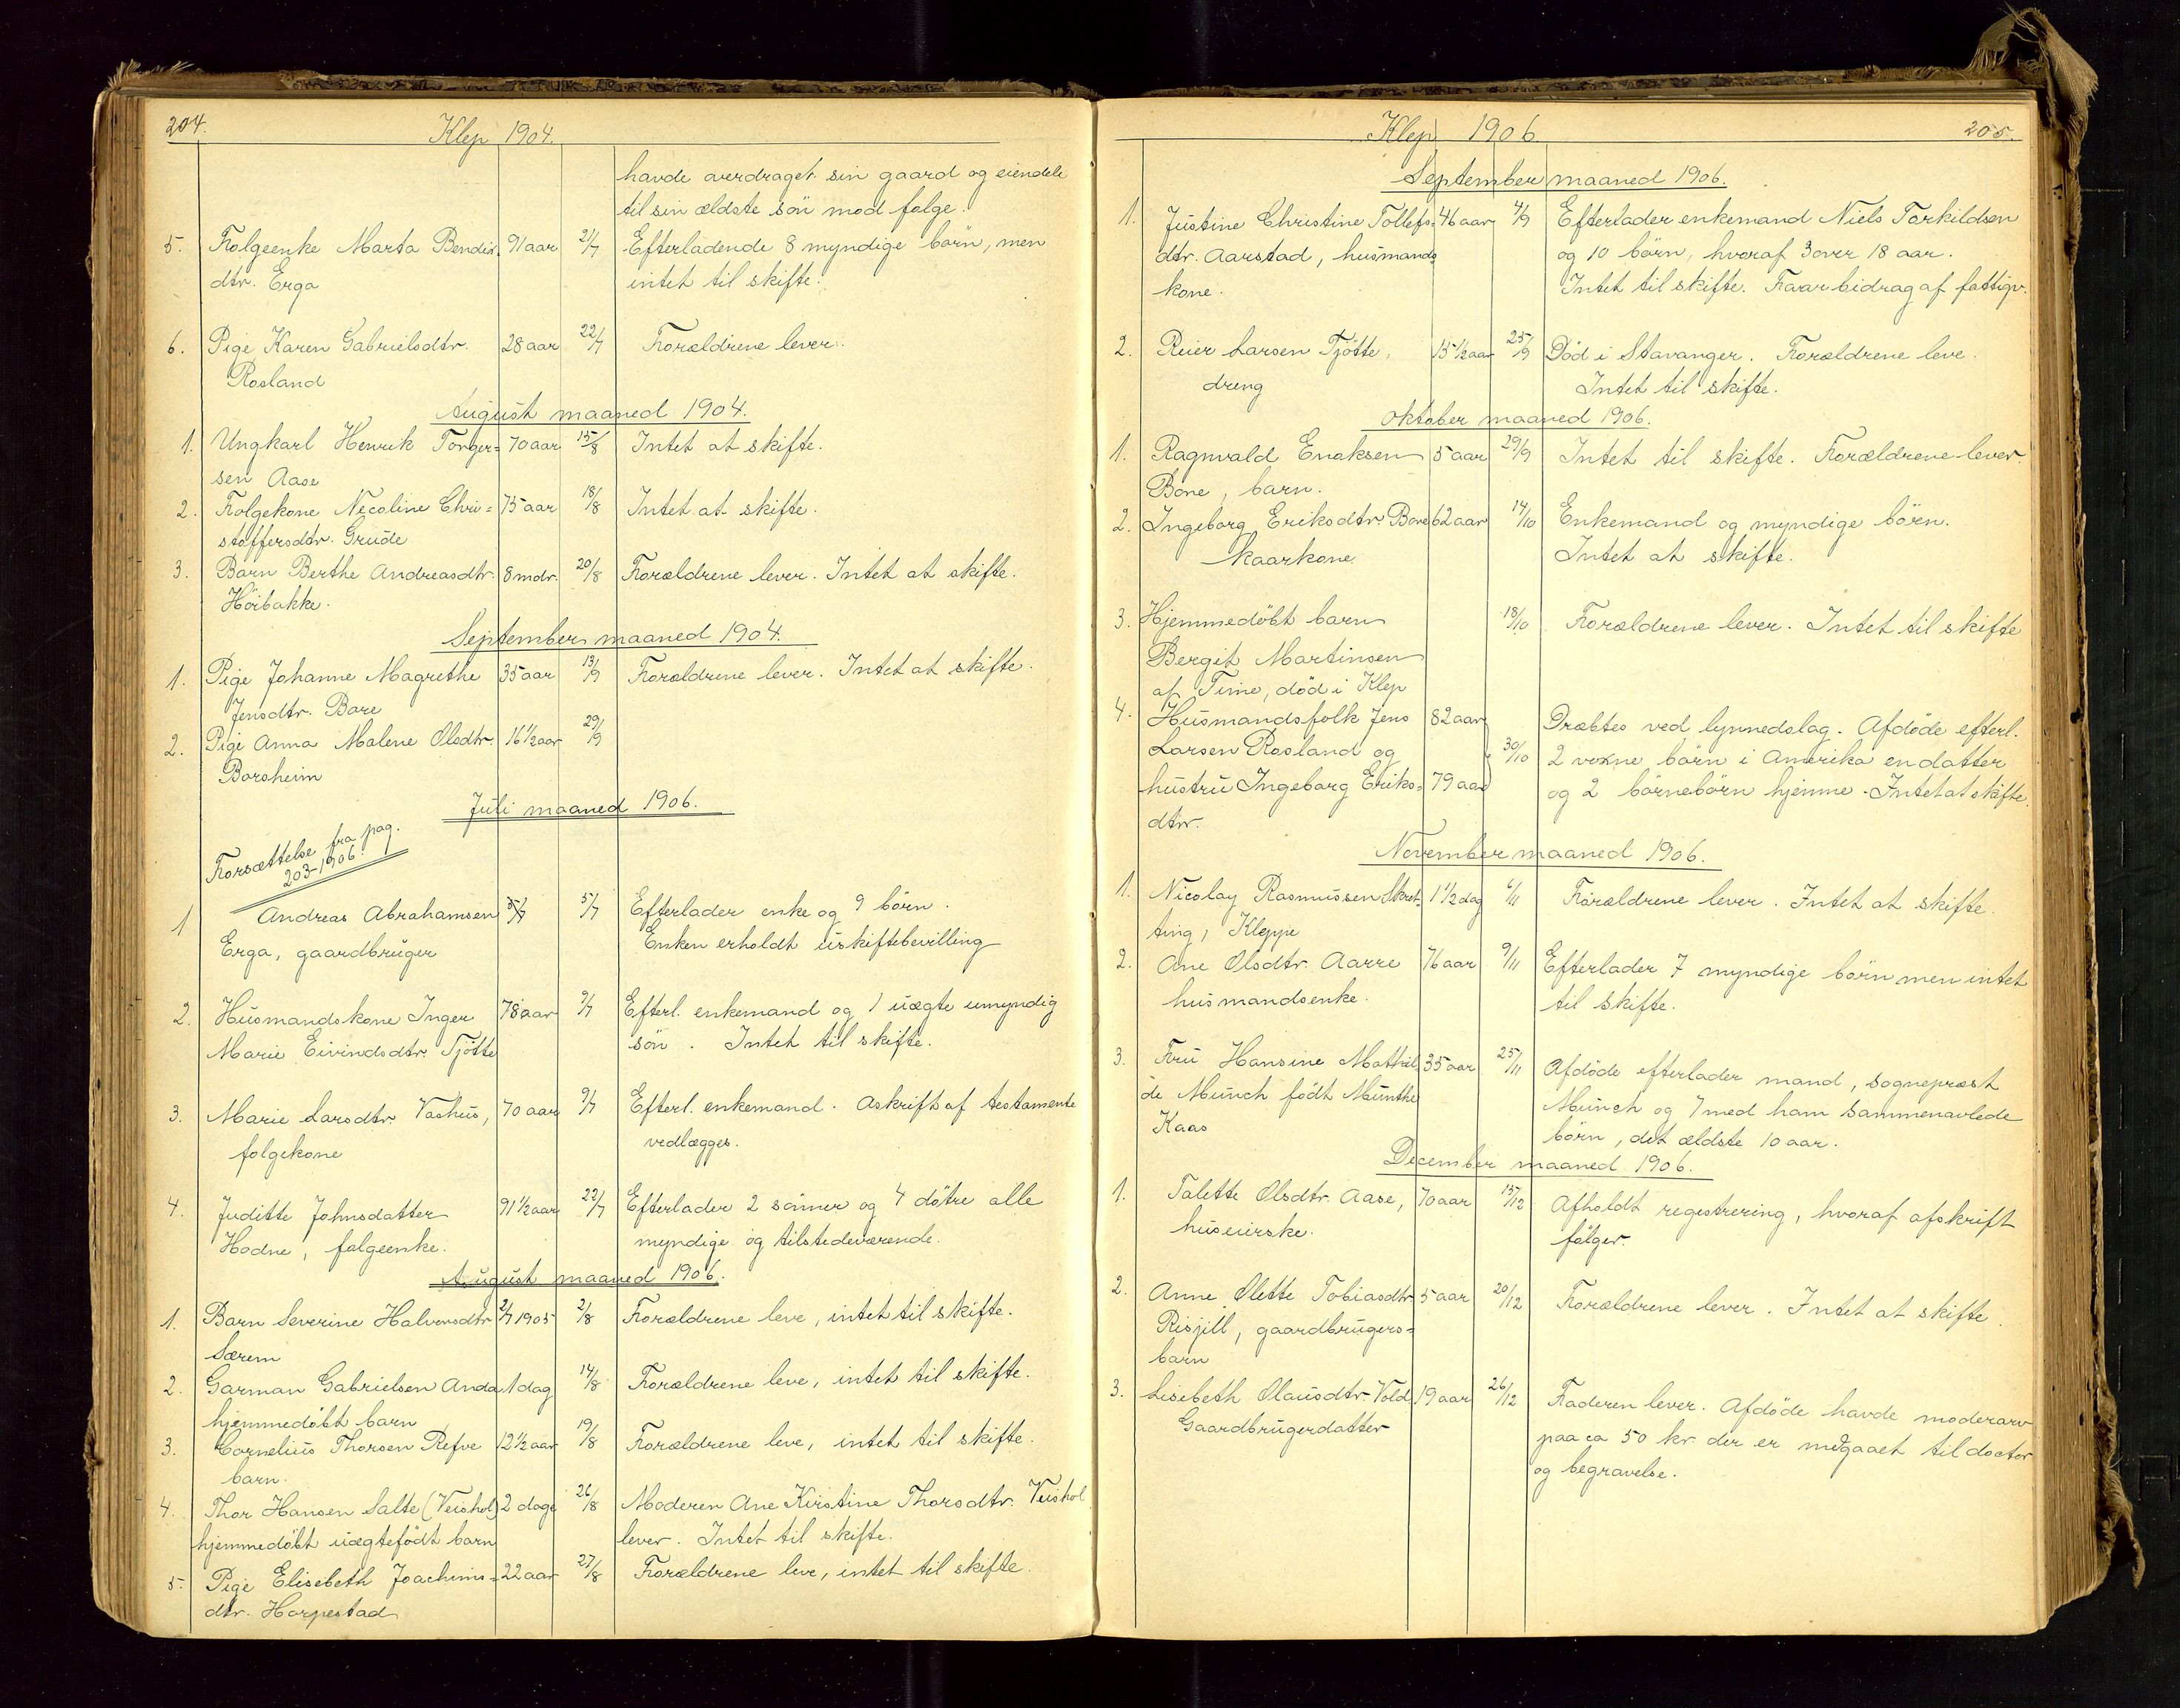 204.
Klep 1904.
havde averdraget sin gaard og eiendele
til sin ældste sön mod folge.
5. Folgeenke Marta Bendix- 91 aar 21/7 Efterladende 8 myndige börn, men
dtr. Erga intet til skifte.
6. Pige Karen Gabrielsdtr. 28 aar 22/7 Forældrene lever.
Rosland
August maaned 1904.
1. Ungkarl Henrik Tonger= 70 aar 15/8 Intet at skifte.
sen Aase
2. Folgekone Nicoline Chri= 75 aar 18/8 Intet at skifte.
stoffersdtr. Grude
3. Barn Berthe Andreasdtr. 8 mdr. 20/8 Forældrene lever. Intet at skifte.
Höibakke.
September maaned 1904.
1. Pige Johanne Magrethe 35 aar 13/9 Forældrene lever. Intet at skifte.
Jensdtr. Bore
2. Pige Anna Malene Olsdtr. 16 1/2 aar 29/9
Borsheim
Juli maaned 1906.
Forsættelse fra pag.
203-1906.
1 Andreas Abrahamsen 5/7 5/7 Efterlader enke og 9 börn.
Erga, gaardbruger Enken erholdt uskiftebevilling
2. Husmandskone Inger 78 aar 9/7 Efterl. enkemand og 1 uægte umyndig
Marie Eivindsdtr. Tjötte sön. Intet til skifte.
3. Marie Larsdtr. Vashus, 70 aar 9/7 Efterl. enkemand. Askrift af testamente
folgekone vedlægges.
4. Juditte Johnsdatter 91 1/2 aar 22/7 Efterlader 2 sönner og 4 döttre alle
Hodne, folgeenke. myndige og tilstedeværende.
August maaned 1906.
1. Barn Severine Halvorsdtr 2/7 1905 2/8 Forældrene leve, intet til skifte.
Særem
2. Garman Gabrielsen Anda 1 dag 14/8 Forældrene leve, intet til skifte.
hjemmedöbt barn
3. Cornelius Thorsen Refve 12 1/2 aar 19/8 Forældrene leve, intet til skifte.
barn.
4. Thor Hansen Salte (Veishol) 2 dage 26/8 Moderen Ane Kirstine Thorsdtr. Veishol
hjemmedöbt uægtefödt barn lever. Intet til skifte.
5. Pige Elisebeth Joachims= 22 aar 27/8 Forældrene leve, intet til skifte.
dtr. Horpestad
Klep 1906
205.
September maaned 1906.
1. Justine Christine Tollefs- 46 aar 4/9 Efterlader enkemand Niels Torkildsen
dtr. Aarstad, husmands og 10 börn, hvoraf 3 over 18 aar.
kone. Intet til skifte. Faar bidrag af fattigv.
2. Reier Larsen Tjötte, 15 1/2 aar 25/9 Död i Stavanger. Forældrene leve.
dreng Intet til skifte.
Oktober maaned 1906.
1. Ragnvald Enoksen 5 aar 29/9 Intet til skifte. Forældrene lever.
Bore, barn.
2. Ingeborg Eriksdtr. Bore 62 aar 14/10 Enkemand og myndige börn.
kaarkone. Intet at skifte.
3. Hjemmedöbt barn 18/10 Forældrene lever. Intet til skifte
Bergit Martinsen
af Time, död i Klep
4. Husmandsfolk Jens 82 aar Dræbtes ved lynnedslag. Afdöde efterl.
Larsen Rosland og 30/10 2 voxne börn i Amerika en datter
hustru Ingeborg Eriks= 79 aar og 2 börnebörn hjemme. Intet at skifte.
dtr.
November maaned 1906.
1. Nicolay Rasmussen Skret- 1 1/2 dag 6/11 Forældrene lever. Intet at skifte.
ting, Kleppe
2. Ane Olsdtr. Aarre 76 aar 9/11 Efterlader 7 myndige börn men intet
husmandsenke. til skifte.
3. Fru Hansine Mathil 35 aar 25/11 Afdöde efterlader mand, sogneprest
de Münch födt Munthe Münch og 7 med ham sammenavlede
Kaas börn, det ældste 10 aar.
December maaned 1906.
1. Talette Olsdtr. Aase, 70 aar 15/12 Afholdt registrering, hvoraf afskrift
huseierske. fölger.
2. Anne Olette Tobiasdtr 5 aar 20/12 Forældrene lever. Intet at skifte.
Risjill, gaardbrugers=
barn
3. Lisebeth Olausdtr. Vold 19 aar 26/12 Faderen lever. Afdöde havde moderarv
Gaardbrugerdatter paa ca 50 kr. der er medgaaet til doctor
og begravelse.